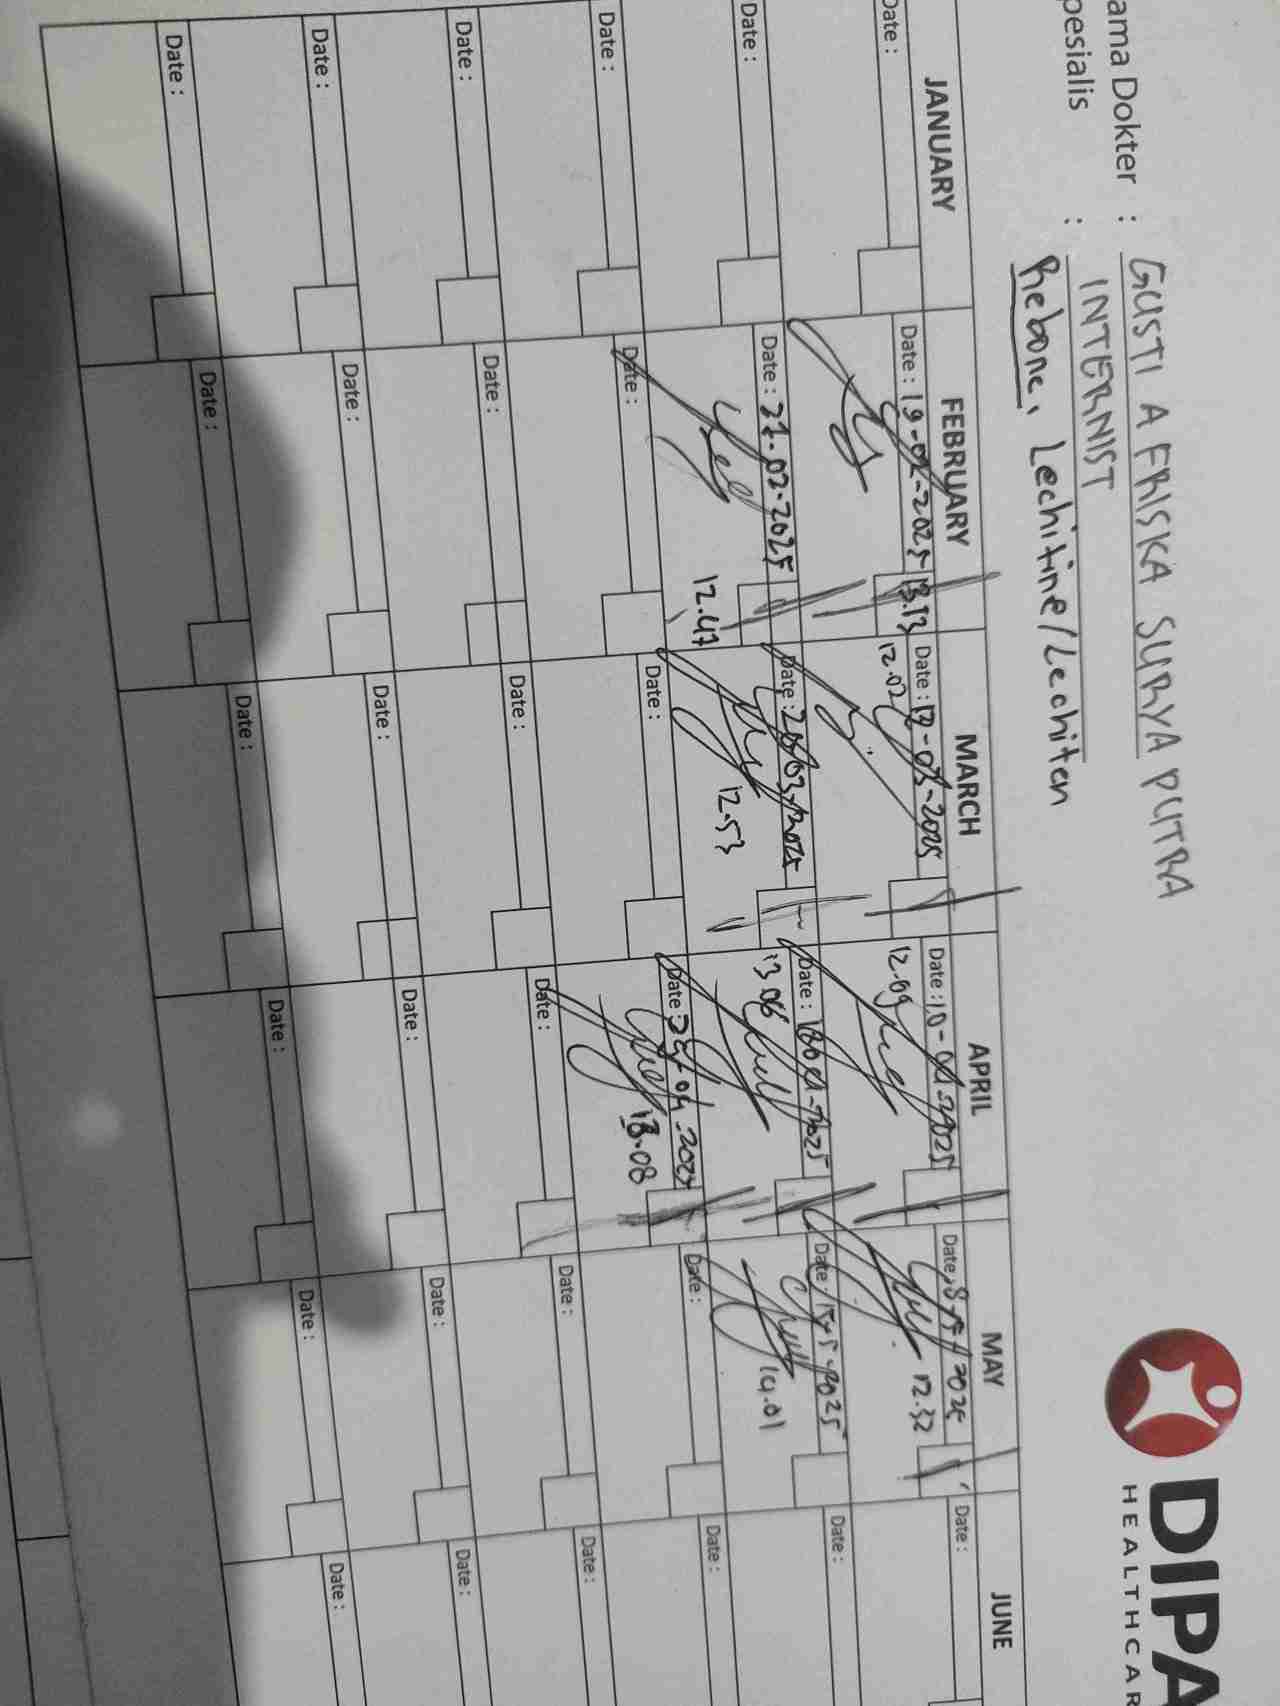 DIPA
HEALTHCAR
ama Dokter : GUSTI A FRISKA SURYA PUTRA
pesialis : INTERNIST
Rebone, Lechitine/Lechiten
JANUARY FEBRUARY MARCH APRIL MAY JUNE
Date : Date : 19-02-2025 13.13 Date : 13-03-2025 Date : 10-04-2025 Date : 8-5-2025 Date :
12.02 12.09 12.32
Date : Date : 27-02-2025 Date : 20-03-2025 Date : 18-04-2025 Date : 15-5-2025 Date :
12.47 12.53 13.06 14.01
Date : Date : Date : Date : 04-2025 Date : Date :
13.08
Date : Date : Date : Date : Date : Date :
Date : Date : Date : Date : Date : Date :
Date : Date : Date : Date : Date : Date :